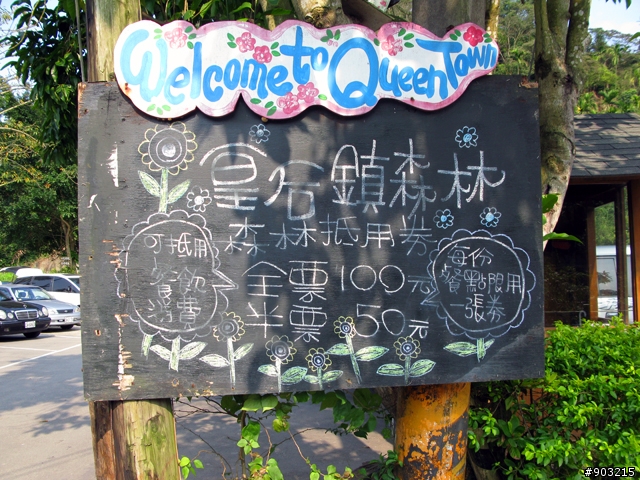 Welcome to Queen Town
皇后鎮森林
森林抵用券
全票100元
半票50元
可抵用
餐飲
消費
每份
餐點限用
一張券
#903215